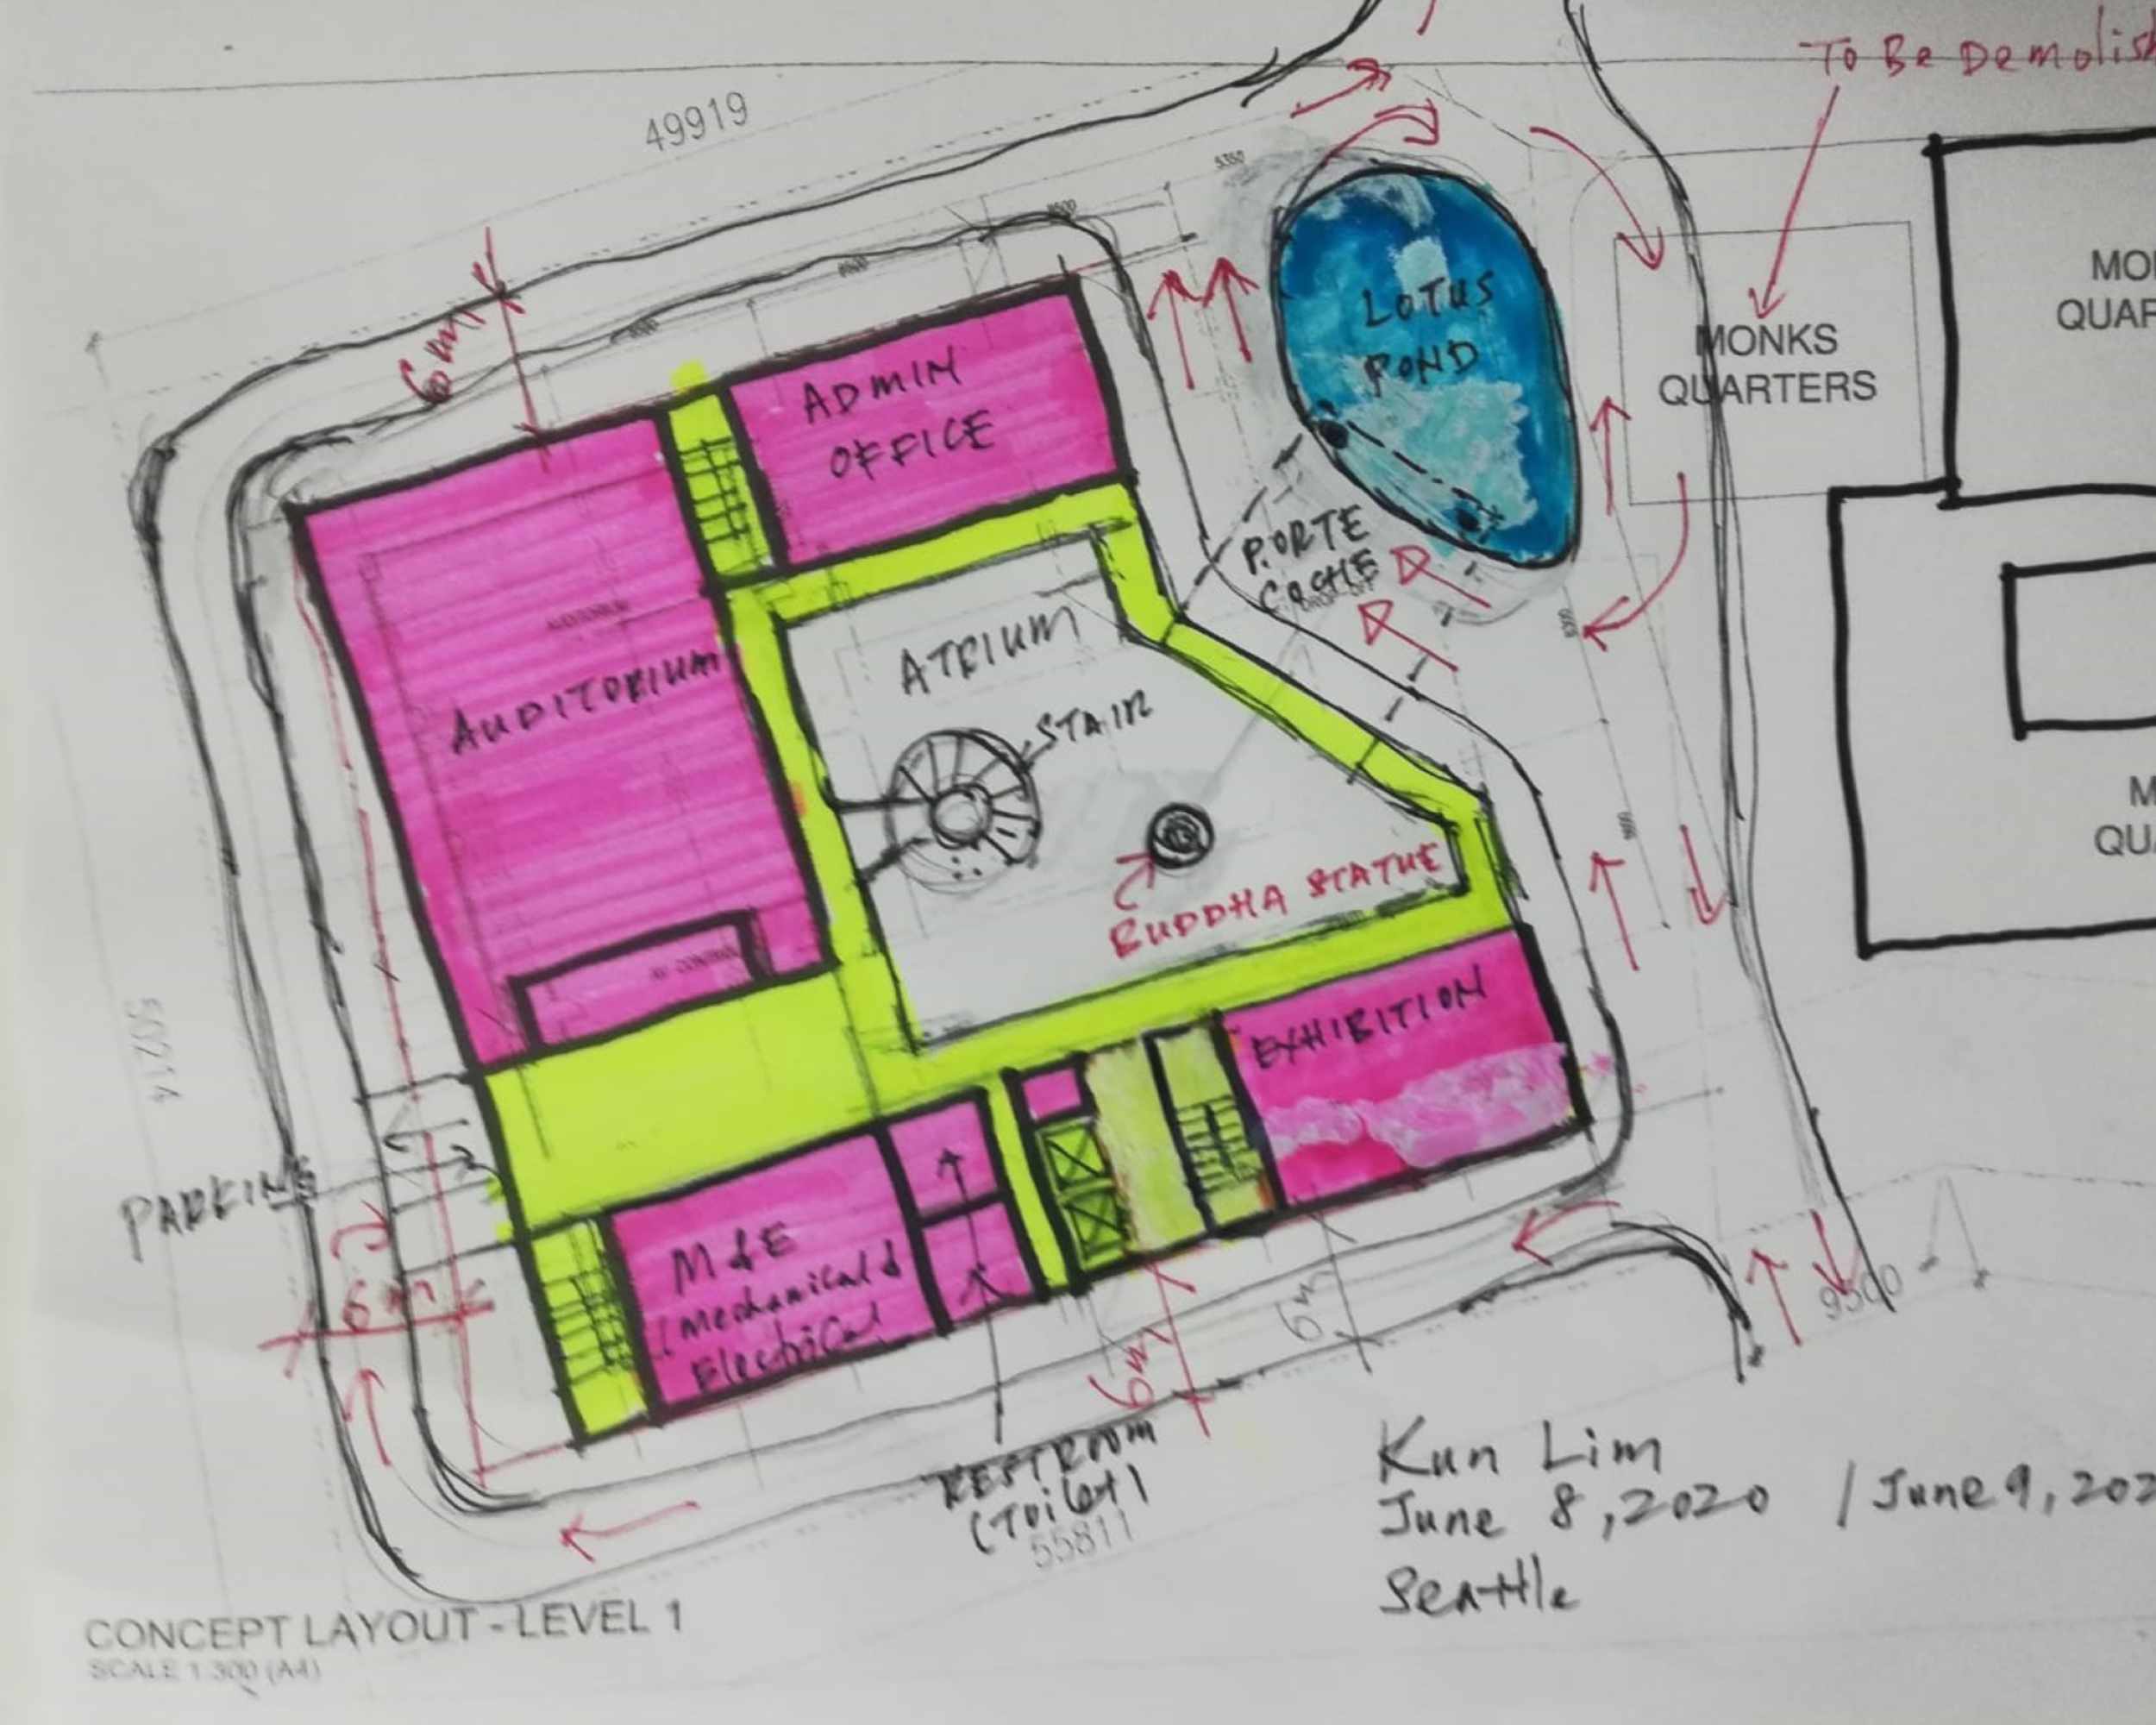 To Be Demolish
49919
5350
8500
8500
8500
6m
ADMIN
OFFICE
LOTUS
POND
MONKS
QUARTERS
MO
QUAR
PORTE
COCHE
AUDITORIUM
AUDITORIUM
ATRIUM
STAIR
BUDDHA STATUE
M
QUA
AV CONTROL
EXHIBITION
50214
PARKING
6m
M&E
(Mechanical &
Electrical
6m
6m
9500
RESTROOM
(Toilet)
55811
Kun Lim
June 8, 2020 / June 9, 202
Seattle
CONCEPT LAYOUT - LEVEL 1
SCALE 1:300 (A4)